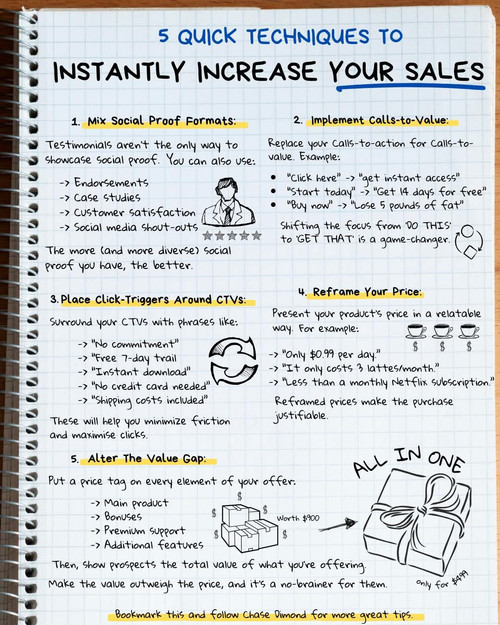 5 QUICK TECHNIQUES TO
INSTANTLY INCREASE YOUR SALES
1. Mix Social Proof Formats:
Testimonials aren't the only way to
showcase social proof. You can also use:
-> Endorsements
-> Case studies
-> Customer satisfaction
-> Social media shout-outs
The more (and more diverse) social
proof you have, the better.
2. Implement Calls-to-Value:
Replace your Calls-to-action for Calls-to-
value. Example:
• "Click here" -> "get instant access"
• "Start today" -> "Get 14 days for free"
• "Buy now" -> "Lose 5 pounds of fat"
Shifting the focus from 'DO THIS'
to 'GET THAT' is a game-changer.
3. Place Click-Triggers Around CTVs:
Surround your CTVs with phrases like:
-> "No commitment"
-> "Free 7-day trail
-> "Instant download"
-> "No credit card needed"
-> "Shipping costs included"
These will help you minimize friction
and maximise clicks.
4. Reframe Your Price:
Present your product's price in a relatable
way. For example:
$ $ $
-> "Only $0.99 per day."
-> "It only costs 3 lattes/month."
-> "Less than a monthly Netflix subscription."
Reframed prices make the purchase
justifiable.
5. Alter The Value Gap:
Put a price tag on every element of your offer:
-> Main product
-> Bonuses
-> Premium support
-> Additional features
$
$ $
$ $
Worth $900
ALL IN ONE
only for $499
Then, show prospects the total value of what you're offering.
Make the value outweigh the price, and it's a no-brainer for them.
Bookmark this and follow Chase Dimond for more great tips.